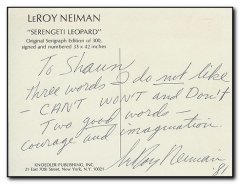 LEROY NEIMAN
"SERENGETI LEOPARD"
Original Serigraph Edition of 300,
signed and numbered 33 x 42 inches
To Shaun
Three words I do not like
- CAN'T WON'T and Don't
- Two good words -
courage and imagination.
LeRoy Neiman
'81
KNOEDLER PUBLISHING, INC.
21 East 70th Street, New York, N.Y. 10021